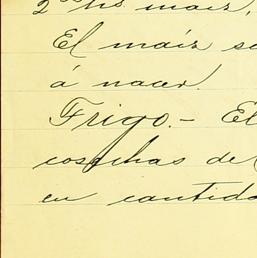 2ᵒˢ hs maiz,
El maíz se
á nacer.
Frigo.- El
cosechas de
en cantida